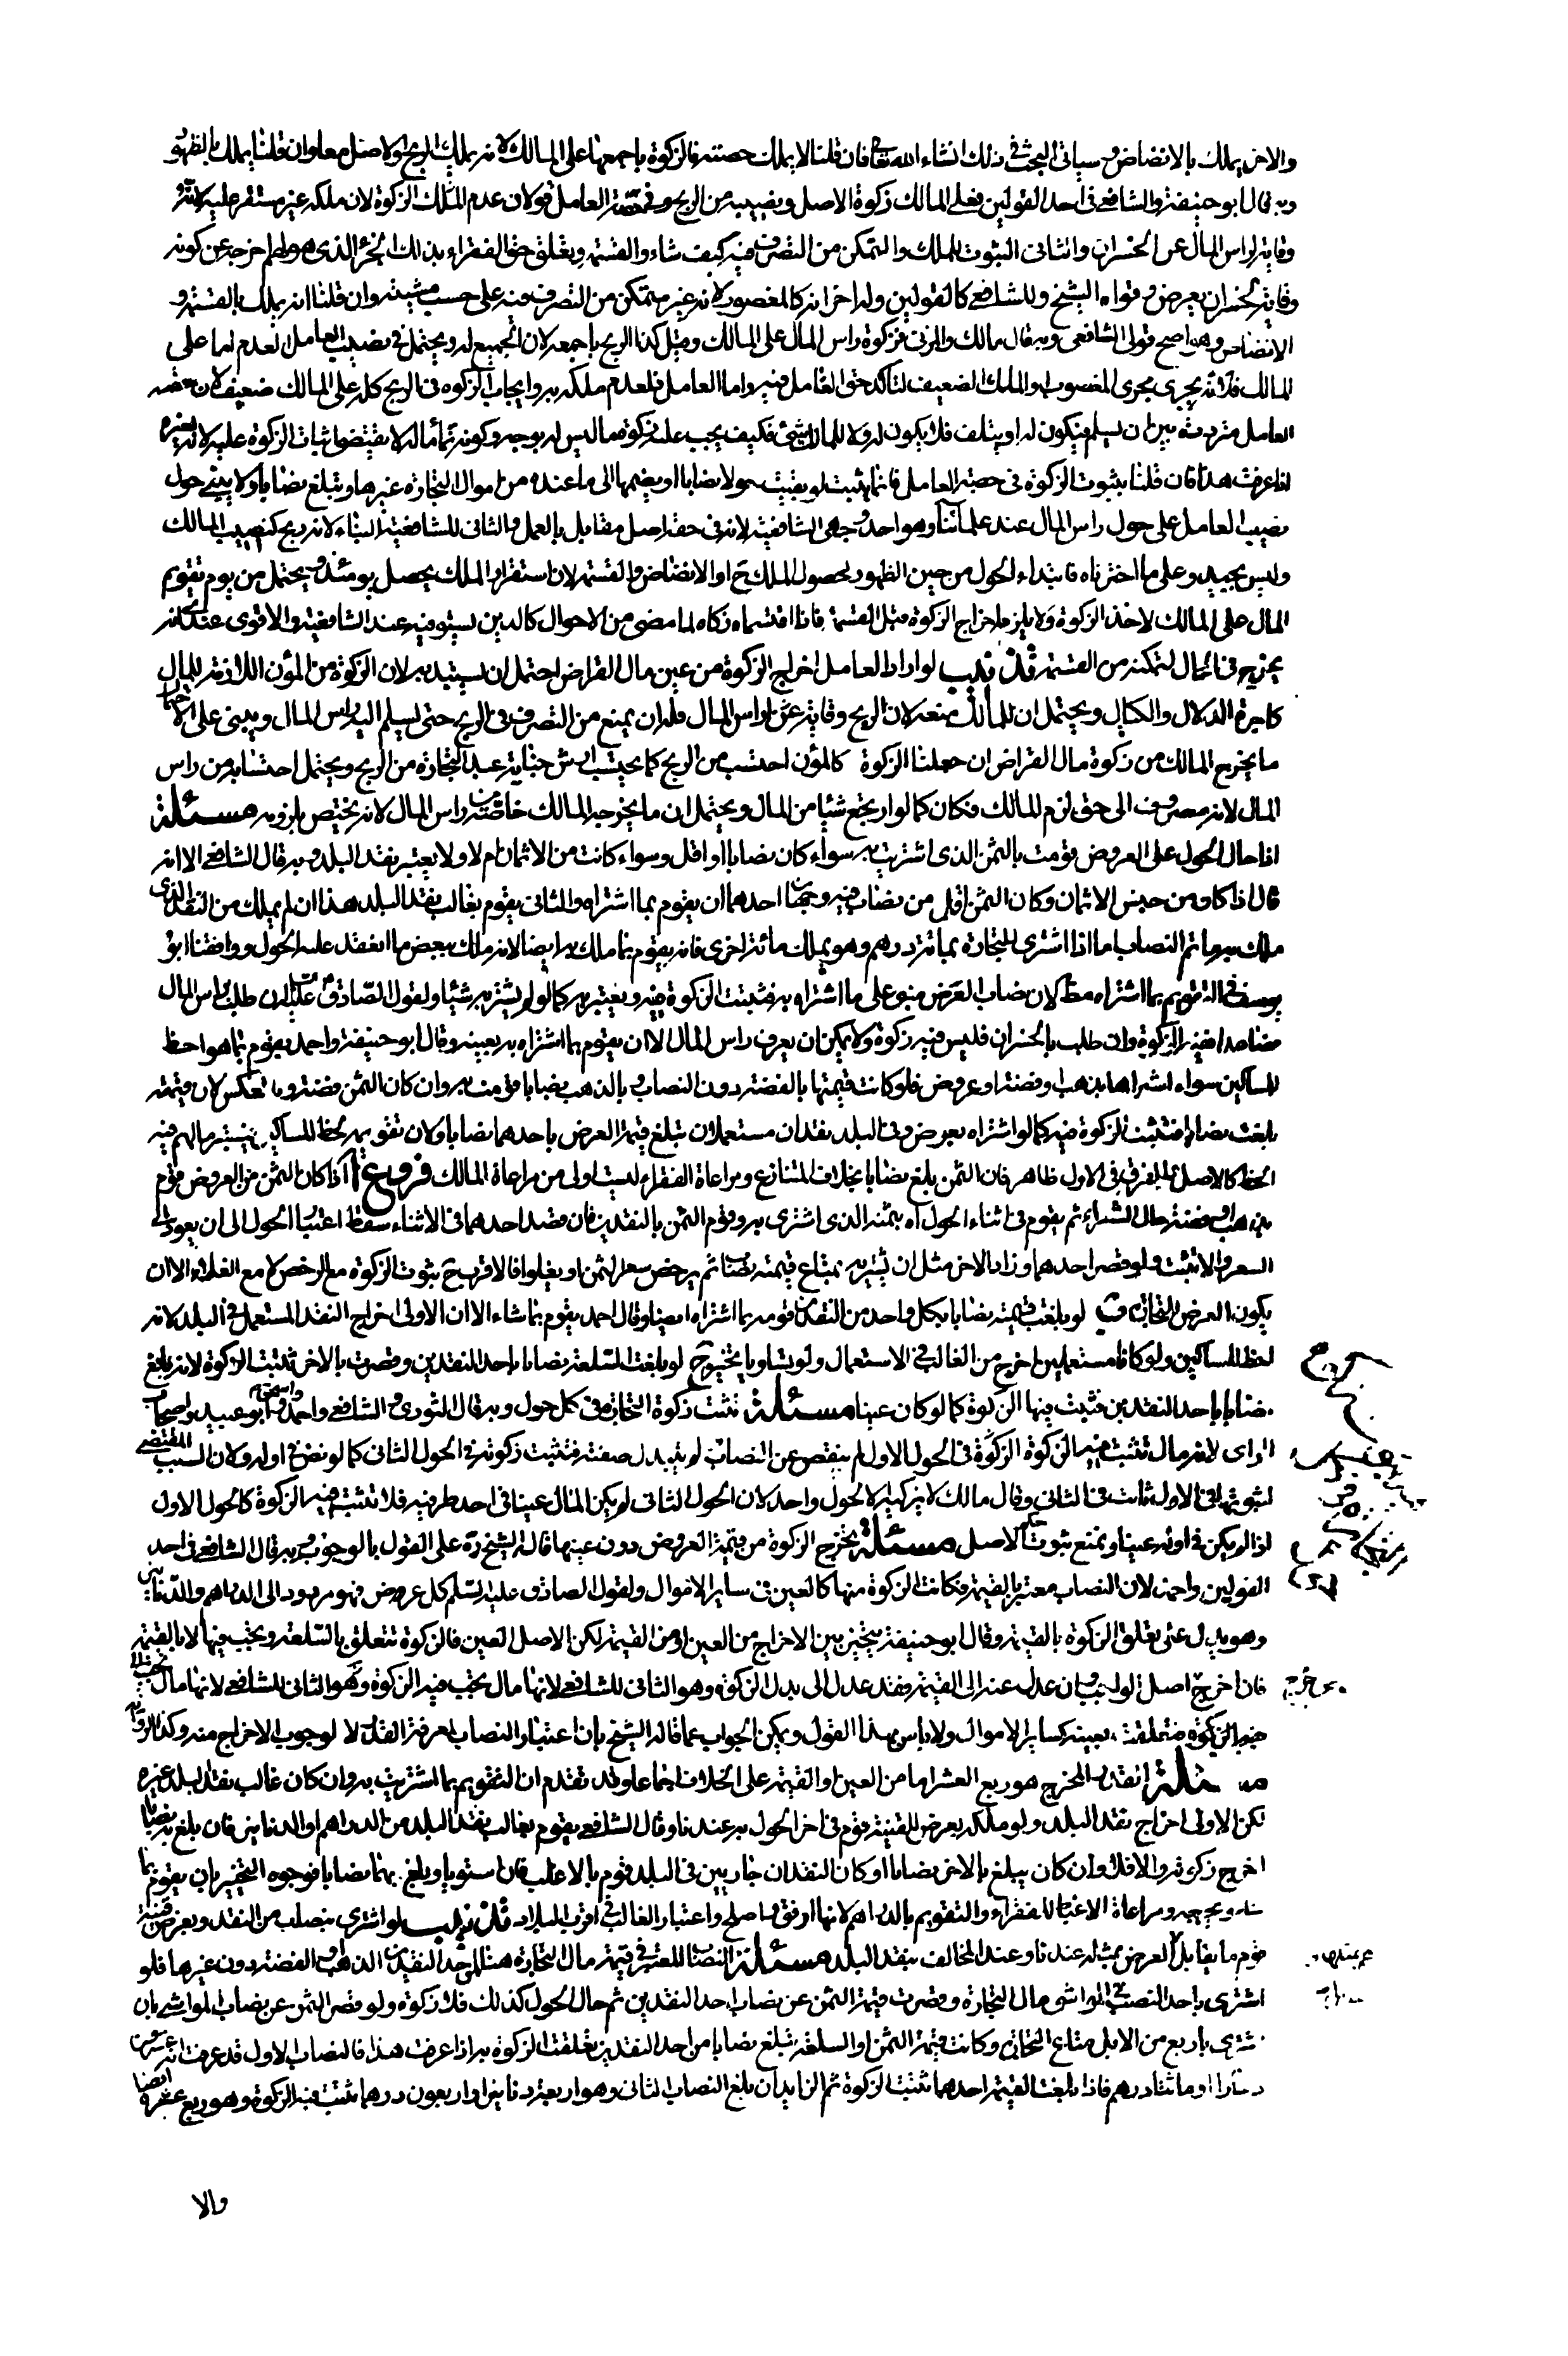 والاخر يملك بالانضاض وسياتى البحث فى ذلك انشاء الله تعالى فان قلنا لا يملك حصته فالزكوة باجمعها على المالك لانه يملك الربح والاصل معا وان قلنا يملك بالظهور
وبه قال ابو حنيفة والشافعى فى احد القولين فعلى المالك زكوة الاصل ونصيبه من الربح وفى حصة العامل قولان عدم الزكوة لان ملكه غير مستقر عليه لانه
وقاية لراس المال عن الخسران والثانى الثبوت للملك والتمكن من التصرف فيه كيف شاء والقسمة وتعلق حق الفقراء بذلك الجزء الذى هو ملهم اخرجه عن كونه
وقاية لخسران يعرض وقواه الشيخ وللشافعى كالقولين ولد اخر انه كالمغصوب لانه غير متمكن من التصرف فيه على حسب مشيته وان قلنا انه يملك بالقسمة و
الانضاض وهو اصح قولى الشافعى وبه قال مالك والمزنى فزكوة راس المال على المالك وقيل كذا الربح باجمعه لان الجميع له ويحتمل فى نصيب العامل العدم اما على
المالك فلانه يجرى مجرى المغصوب والملك الضعيف لتاكد حق العامل فيه واما العامل فلعدم ملكه به وايجاب الزكوة فى الربح كله على المالك ضعيف لان حصة
العامل مترددة بين ان يسلم فيكون له او يتلف فلا يكون له ولا للمالك شئ فكيف يجب عليه زكوة ما ليس له بوجه وكونه نماء ماله لا يقتضى اثبات الزكوة عليه لانه لغيره
اذا عرفت هذا فان قلنا بثبوت الزكوة فى حصة العامل فانما يثبت لو بقيت حولا نصابا او يضمها الى ما عنده من اموال التجارة غيرها وتبلغ نصابا ولا يبنى حول
نصيب العامل على حول راس المال عند علمائنا وهو احد وجهى الشافعية لانه فى حقه اصل مقابل بالعمل والثانى للشافعية البناء لانه ربح كنصيب المالك
وليس بجيد وعلى ما اخترناه فابتداء الحول من حين الظهور لحصول الملك ح او الانضاض والقسمة لان استقرار الملك يحصل يومئذ ويحتمل من يوم تقويم
المال على المالك لاخذ الزكوة ولا يلزمه اخراج الزكوة قبل القسمة فاذا اقتسماه زكاه لما مضى من الاحوال كالدين يستوفيه عند الشافعية والاقوى عندى انه
يخرج فى الحال لتمكنه من القسمة تذنيب لو اراد العامل اخراج الزكوة من عين مال القراض احتمل ان يستبد به لان الزكوة من المؤن اللازمة للمال
كاجرة الدلال والكيال ويحتمل ان للمالك منعه لان الربح وقاية عن راس المال فله ان يمنع من التصرف فى الربح حتى يسلم اليه راس المال ويبنى على الاحتمالين
ما يخرج المالك من زكوة مال القراض ان جعلنا الزكوة كالمؤن احتسب من الربح كما يحتسب ارش جناية عبد التجارة من الربح ويحتمل احتسابه من راس
المال لانه مصروف الى حق لزم المالك فكان كما لو ارتجع شيئا من المال ويحتمل ان ما يخرجه المالك خاصة من راس المال لانه يختص بلزومه مسئلة
اذا حال الحول على العروض قومت بالثمن الذى اشتريت به سواء كان نصابا او اقل وسواء كانت من الاثمان ام لا ولا يعتبر نقد البلد وبه قال الشافعى الا انه
قال اذا كان من جنس الاثمان وكان الثمن اقل من نصاب فيه وجهان احدهما ان يقوم بما اشتراه والثانى يقوم بغالب نقد البلد هذا ان لم يملك من النقد الذى
ملك به ما تم النصاب اما اذا اشترى للتجارة بمائة درهم وهو يملك مائة اخرى فانه يقوم بما ملك به ايضا لانه ملك ببعض ما انعقد عليه الحول ووافقنا ابو
يوسف فى التقويم بما اشتراه مط لان نصاب العرض مبنى على ما اشتراه به فتثبت الزكوة فيه ويعتبر به كما لو لم يشتر به شيئا ولقول الصادق ع ان طلب براس المال
فصاعدا ففيه الزكوة وان طلب بالخسران فليس فيه زكوة ولا يمكن ان يعرف راس المال الا ان يقوم بما اشتراه به بعينه وقال ابو حنيفة واحمد يقوم بما هو احظ
للمساكين سواء اشتراها بذهب او فضة او عروض فلو كانت قيمتها بالفضة دون النصاب وبالذهب نصابا قومت به وان كان الثمن فضة وبالعكس لان قيمته
بلغت نصابا فتثبت الزكوة فيه كما لو اشتراه بعرض وفى البلد نقدان مستعملان تبلغ قيمة العرض باحدهما نصابا ولان تقويمه لحظ المساكين فيعتبر ما لهم فيه
الحظ كالاصل والفرق فى الاول ظاهر فان الثمن بلغ نصابا بخلاف المتنازع ومراعاة الفقراء ليست اولى من مراعاة المالك فروع ا اذا كان الثمن من العروض قوم
بذهب او فضة حال الشراء ثم يقوم فى اثناء الحول اه بثمنه الذى اشترى به وقوم الثمن بالنقدين فان قصر احدهما فى الاثناء سقط اعتبار الحول الى ان يعود
السعر والا تثبت ولو قصر احدهما وزاد الاخر مثل ان يشترى بمتاع قيمته نصاب ثم يرخص سعر الثمن او يغلو فالاقرب ح ثبوت الزكوة مع الرخص لا مع الغلاء الا ان
يكون العرض للتجارة ب لو بلغت قيمته نصابا بكل واحد من النقدين قومه بما اشتراه ايضا وقال احمد يقوم بما شاء الا ان الاولى اخراج النقد المستعمل فى البلد لانه
احظ للمساكين ولو كانا مستعملين اخرج من الغالب فى الاستعمال ولو تساويا يتخير ج لو بلغت السلعة نصابا باحد النقدين وقصرت بالاخر ثبتت الزكوة لانه بلغ
نصابا باحد النقدين فثبتت فيها الزكوة كما لو كان عينا مسئلة تثبت زكوة التجارة فى كل حول وبه قال الثورى والشافعى واحمد واسحق وابو عبيد واصحاب
الراى لانه مال تثبت فيه الزكوة فى الحول الاول لم ينقص عن النصاب لم يتبدل صفته فتثبت زكوته فى الحول الثانى كما لو نض فى اوله ولان السبب المقتضى
لثبوتها فى الاول ثابت فى الثانى وقال مالك لا يزكيه الا لحول واحد لان الحول الثانى لم يكن المال عينا فى احد طرفيه فلا تثبت فيه الزكوة كالحول الاول
اذا لم يكن فى اوله عينا ويمنع ثبوت حكم الاصل مسئلة يخرج الزكوة من قيمة العروض دون عينها قاله الشيخ ره على القول بالوجوب وبه قال الشافعى فى احد
القولين واحمد لان النصاب معتبر بالقيمة فكانت الزكوة منها كالعين فى ساير الاموال ولقول الصادق عليه السلم كل عروض فهو مردود الى الدراهم والدنانير
وهو يدل على تعلق الزكوة بالقيمة وقال ابو حنيفة يتخير بين الاخراج من العين او من القيمة لكن الاصل العين فالزكوة تتعلق بالسلعة وتجب فيها لا بالقيمة
فان اخرج اصل الواجب وان عدل عنه الى القيمة فقد عدل الى بدل الزكوة وهو الثانى للشافعى لانها مال تجب فيه الزكوة وهو الثانى للشافعى لانها مال
فيه الزكوة متعلقة بعينه كساير الاموال ولا باس بهذا القول ويمكن الجواب عما قاله الشيخ بان اعتبار النصاب لمعرفة القدر لا لوجوب الاخراج منه وكذا الرواية
مسئلة القدر المخرج هو ربع العشر اما من العين او القيمة على الخلاف اجماعا وقد تقدم ان التقويم بما اشتريت به وان كان غالب نقد البلد غيره
لكن الاولى اخراج نقد البلد ولو ملكه بعرض للقنية قوم فى اخر الحول به عندنا وقال الشافعى يقوم بغالب نقد البلد من الدراهم او الدنانير فان بلغ به نصابا
اخرج زكوته والا فلا وان كان يبلغ بالاخر نصابا او كان النقدان جاريين فى البلد قوم بالاغلب فان استويا وبلغ بهما نصابا فوجوه التخيير بان يقوم بما
شاء ومراعاة الاغبط للفقراء والتقويم بالدراهم لانها ارفق واصلح واعتبار الغالب فى اقرب البلاد تذنيب لو اشترى بنصاب من النقد وبعرض قنية
قوم ما يقابل العرض بمثله عندنا وعند المخالف بنقد البلد مسئلة النصاب المعتبر فى قيمة مال التجارة هنا احد النقدين الذهب او الفضة دون غيرها فلو
اشترى باحد النصب فى المواشى مال التجارة وقصرت قيمة الثمن عن نصاب احد النقدين ثم حال الحول كذلك فلا زكوة ولو قصر الثمن عن نصاب المواشى بان
يشترى باربع من الابل متاع التجارة وكانت قيمة الثمن او السلعة تبلغ نصابا من احد النقدين تعلقت الزكوة به اذا عرفت هذا فالنصاب الاول قد عرفت انه عشرون
دينارا او مائتا درهم فاذا بلغت القيمة احدهما ثبتت الزكوة ثم الزايد ان بلغ النصاب الثانى وهو اربعة دنانير او اربعون درهما تثبت فيه الزكوة وهو ربع عشره ايضا
والا